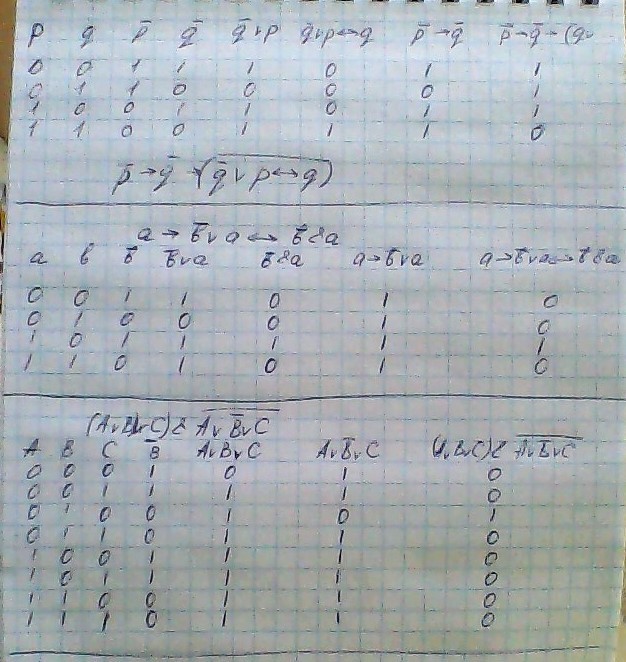 p q p̅ q̅ q̅∨p q̅∨p↔q p̅→q̅ p̅→q̅→(q∨
0 0 1 1 1 0 1 1
0 1 1 0 0 0 0 1
1 0 0 1 1 0 1 1
1 1 0 0 1 1 1 0
p̅→q̅→(q̅∨p↔q)
a→b̅∨a↔b̅&a
a b b̅ b̅∨a b̅&a a→b̅∨a a→b̅∨a↔b̅&a
0 0 1 1 0 1 0
0 1 0 0 0 1 0
1 0 1 1 1 1 1
1 1 0 1 0 1 0
(A∨B∨C)& A∨B̅∨C
A B C B̅ A∨B∨C A∨B̅∨C (A∨B∨C)& A∨B̅∨C
0 0 0 1 0 1 0
0 0 1 1 1 1 0
0 1 0 0 1 0 1
0 1 1 0 1 1 0
1 0 0 1 1 1 0
1 0 1 1 1 1 0
1 1 0 0 1 1 0
1 1 1 0 1 1 0